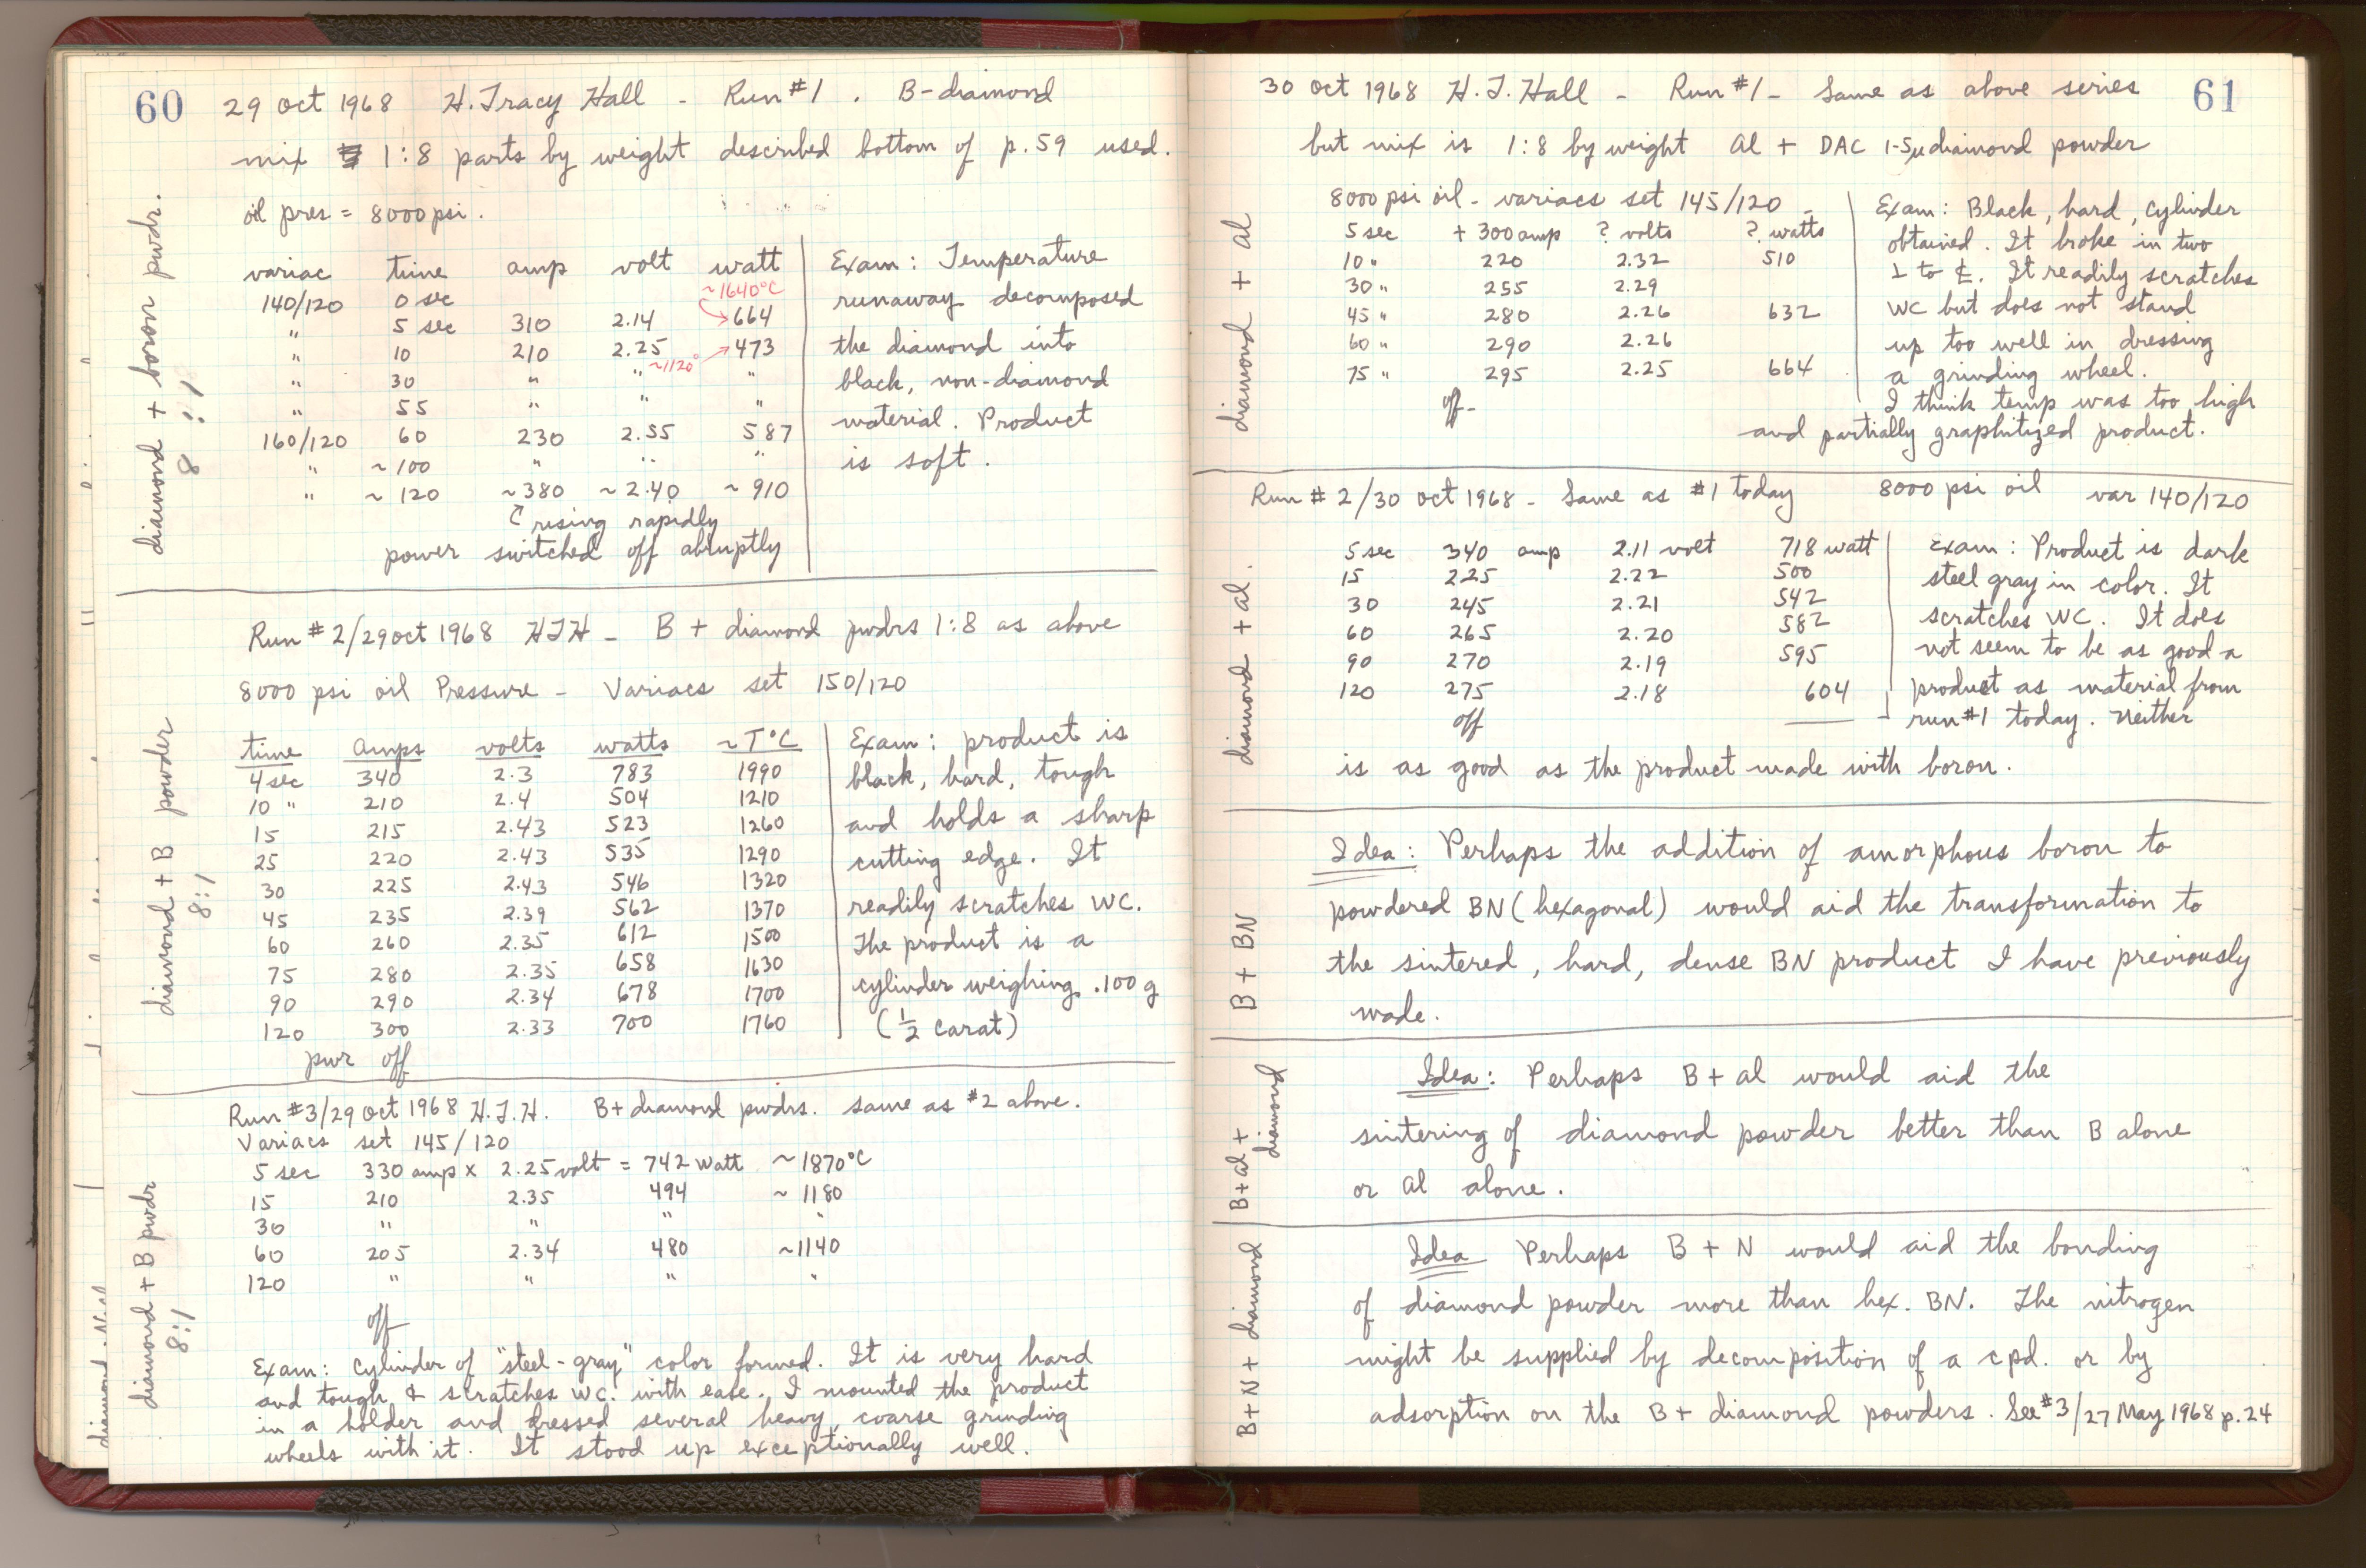 60 29 Oct 1968 H. Tracy Hall - Run #1 . B-diamond
mix 1:8 parts by weight described bottom of p. 59 used.
oil pres = 8000 psi.
diamond + boron pwdr.
8 : 1
variac time amp volt watt
~1640°C
140/120 0 sec
" 5 sec 310 2.14 664
" 10 210 2.25 473
~1120°
" 30 " " "
" 55 " " "
160/120 60 230 2.55 587
" ~100 " " "
" ~120 ~380 ~2.40 ~910
rising rapidly
power switched off abruptly
Exam: Temperature
runaway decomposed
the diamond into
black, non-diamond
material. Product
is soft.
Run #2/29 oct 1968 HTH - B + diamond pwdrs 1:8 as above
8000 psi oil Pressure - Variacs set 150/120
diamond + B powder
8:1
time Amps volts watts ~T°C
4 sec 340 2.3 783 1990
10 " 210 2.4 504 1210
15 215 2.43 523 1260
25 220 2.43 535 1290
30 225 2.43 546 1320
45 235 2.39 562 1370
60 260 2.35 612 1500
75 280 2.35 658 1630
90 290 2.34 678 1700
120 300 2.33 700 1760
pwr off
Exam: product is
black, hard, tough
and holds a sharp
cutting edge. It
readily scratches WC.
The product is a
cylinder weighing .100 g
(1/2 carat)
Run #3/29 Oct 1968 H.T.H. B+diamond pwdrs. same as #2 above.
Variacs set 145/120
diamond + B pwdr
8:1
5 sec 330 amp x 2.25 volt = 742 watt ~1870°C
15 210 2.35 494 ~1180
30 " " " "
60 205 2.34 480 ~1140
120 " " " "
off
Exam: Cylinder of "steel-gray" color formed. It is very hard
and tough & scratches WC. with ease. I mounted the product
in a holder and dressed several heavy, coarse grinding
wheels with it. It stood up exceptionally well.
30 Oct 1968 H.T. Hall - Run #1 - Same as above series 61
but mix is 1:8 by weight Al + DAC 1-5μ diamond powder
diamond + al
8000 psi oil - variacs set 145/120 -
5 sec + 300 amp ? volts ? watts
10 " 220 2.32 510
30 " 255 2.29
45 " 280 2.26 632
60 " 290 2.26
75 " 295 2.25 664
off -
Exam: Black, hard, cylinder
obtained. It broke in two
⊥ to ℄. It readily scratches
WC but does not stand
up too well in dressing
a grinding wheel.
I think temp was too high
and partially graphitized product.
Run #2/30 Oct 1968 - Same as #1 today 8000 psi oil var 140/120
diamond + al.
5 sec 340 amp 2.11 volt 718 watt
15 225 2.22 500
30 245 2.21 542
60 265 2.20 582
90 270 2.19 595
120 275 2.18 604
off
Exam: Product is dark
steel gray in color. It
scratches WC. It does
not seem to be as good a
product as material from
run #1 today. Neither
is as good as the product made with boron.
B + BN
Idea: Perhaps the addition of amorphous boron to
powdered BN (hexagonal) would aid the transformation to
the sintered, hard, dense BN product I have previously
made.
B+al+
diamond
Idea: Perhaps B + al would aid the
sintering of diamond powder better than B alone
or al alone.
B + N + diamond
Idea Perhaps B + N would aid the bonding
of diamond powder more than hex. BN. The nitrogen
might be supplied by decomposition of a cpd. or by
adsorption on the B + diamond powders. See #3/27 May 1968 p. 24